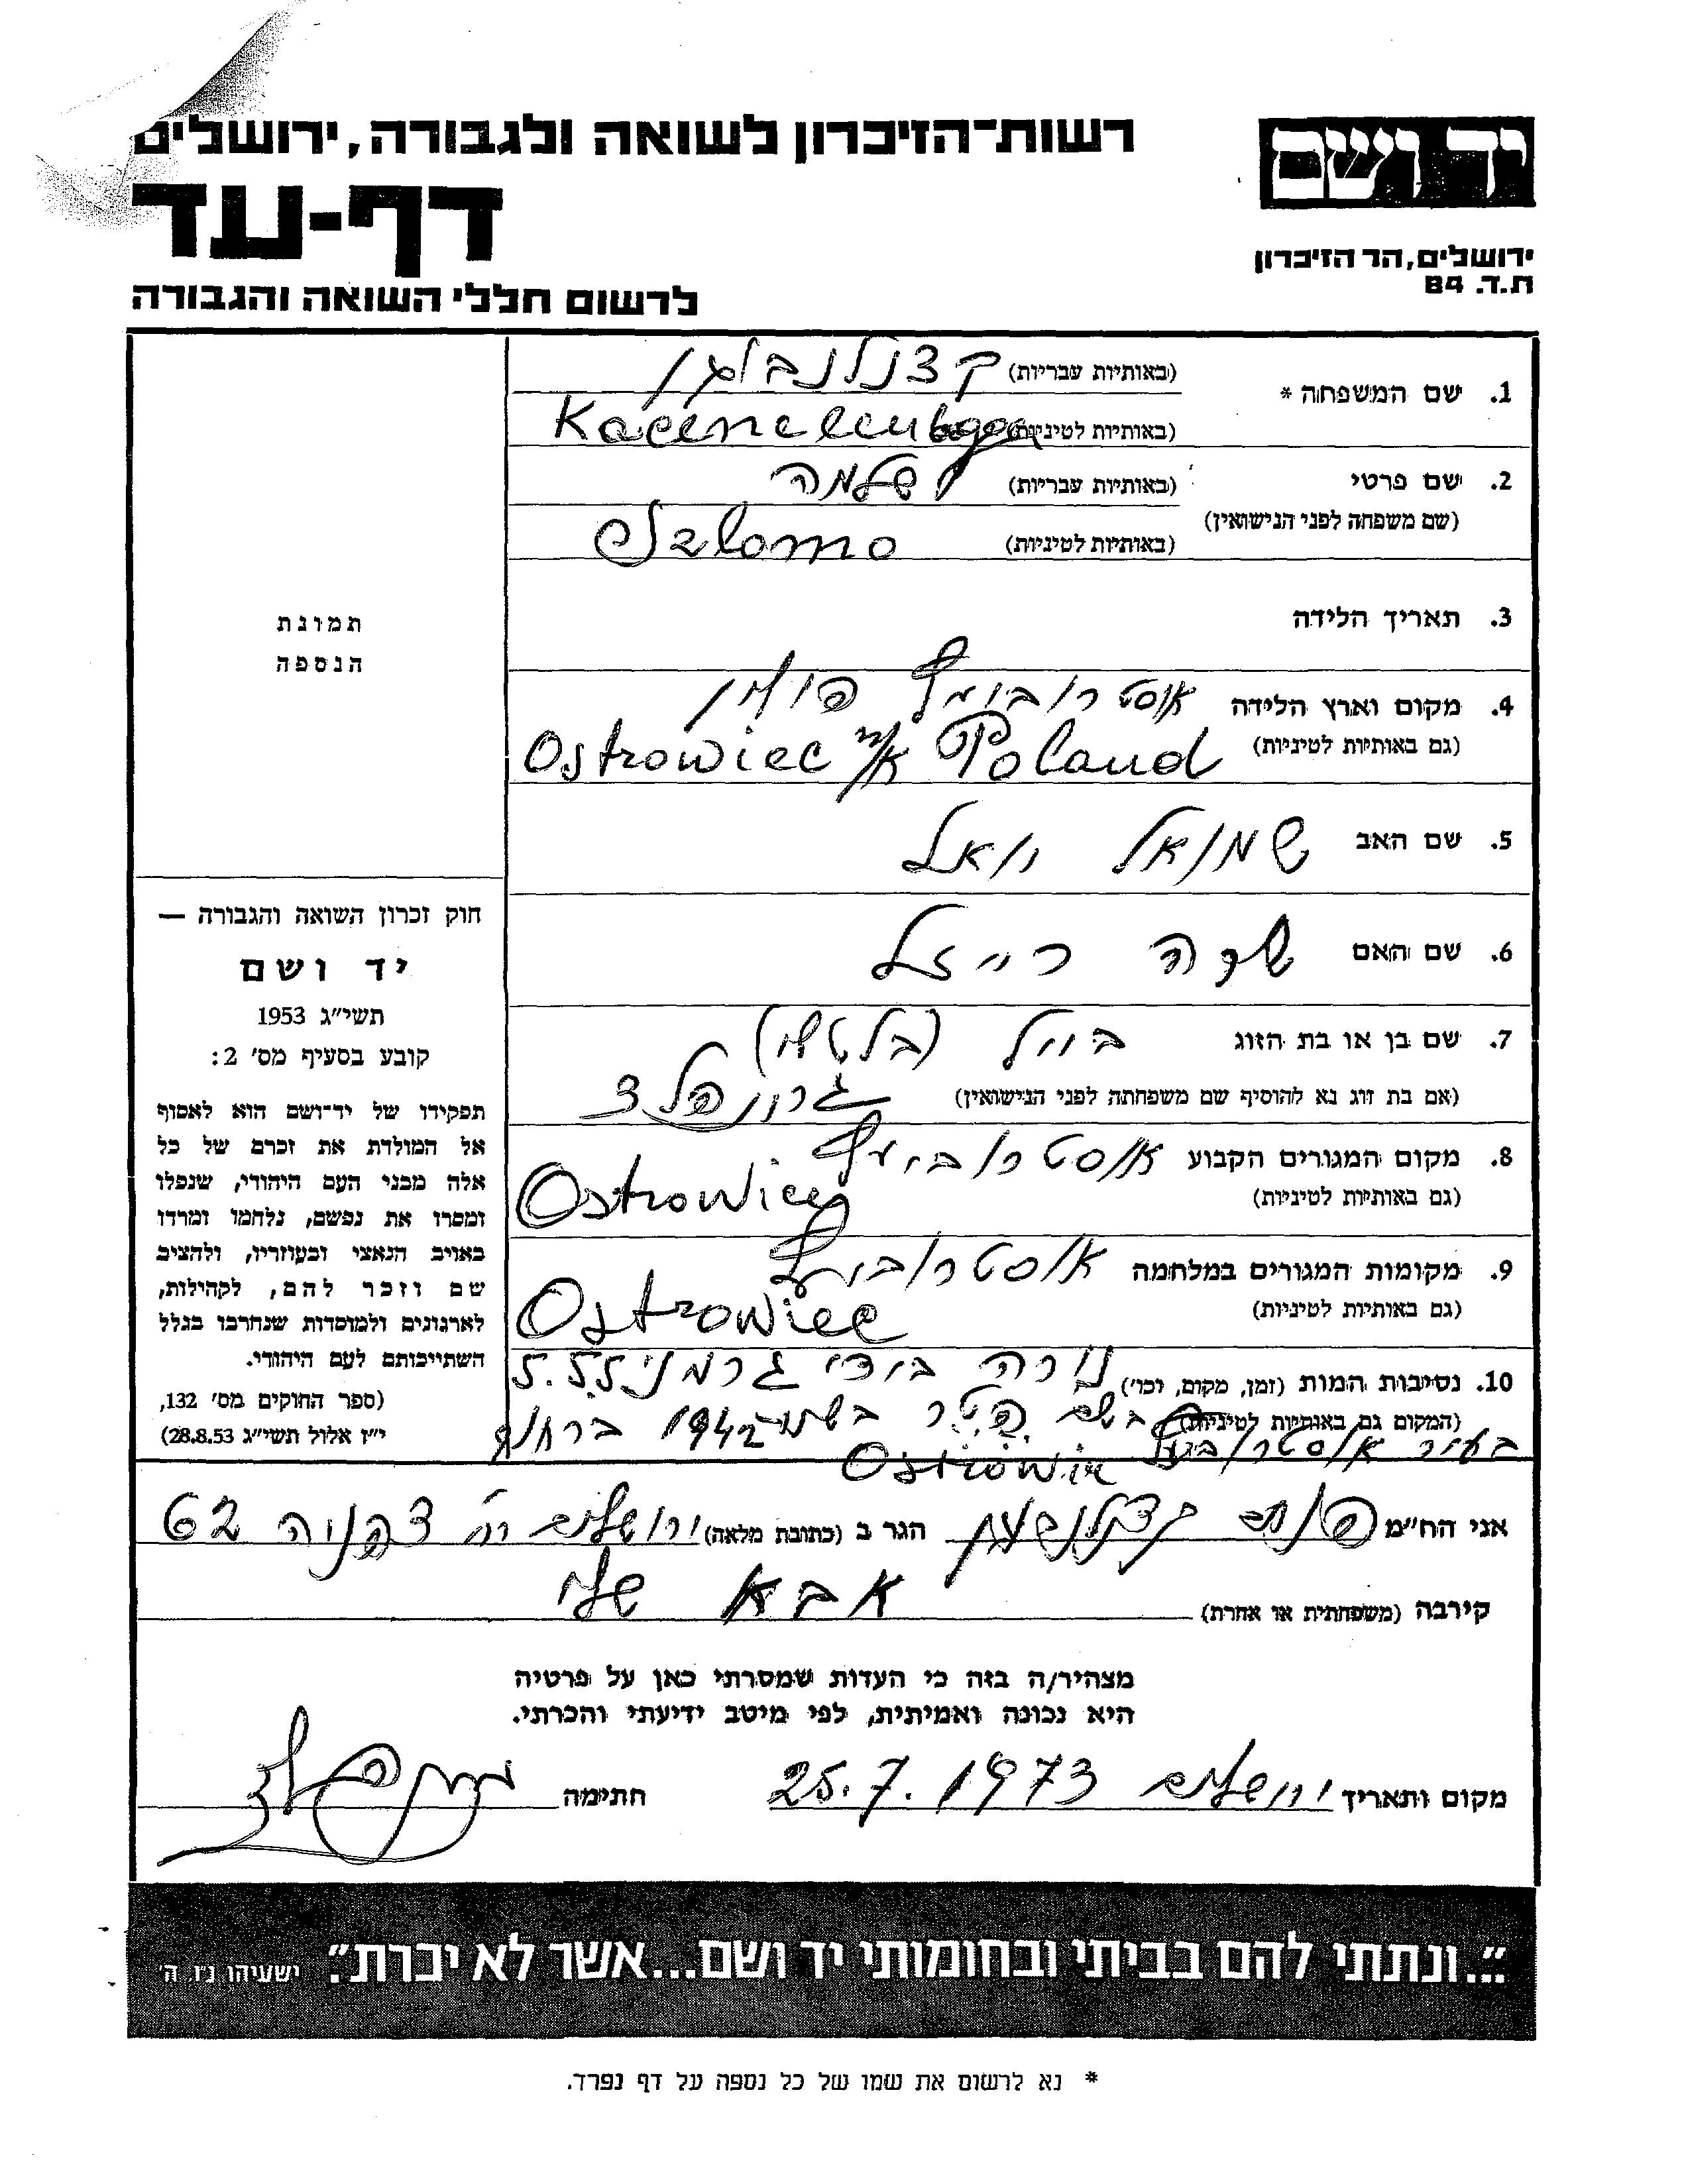 רשות־הזיכרון לשואה ולגבורה, ירושלים
דף-עד
לרשום חללי השואה והגבורה
יד ושם
ירושלים, הר הזיכרון
ת.ד. 84
1. שם המשפחה * (באותיות עבריות)
(באותיות לטיניות)
2. שם פרטי (באותיות עבריות) שלמה
(שם משפחה לפני הנישואין)
(באותיות לטיניות) Szlomo
3. תאריך הלידה
4. מקום וארץ הלידה פולין
(גם באותיות לטיניות) Ostrowiec Poland
5. שם האב שמואל יואל
6. שם האם שרה רייזל
7. שם בן או בת הזוג
(אם בת זוג נא להוסיף שם משפחתה לפני הנישואין)
8. מקום המגורים הקבוע
(גם באותיות לטיניות) Ostrowiec
9. מקומות המגורים במלחמה
(גם באותיות לטיניות) Ostrowiec
10. נסיבות המות (זמן, מקום, וכו') נורה בידי
(המקום גם באותיות לטיניות) 1942
בעיר
תמונת
הנספה
חוק זכרון השואה והגבורה —
יד ושם
תשי״ג 1953
קובע בסעיף מס' 2:
תפקידו של יד־ושם הוא לאסוף
אל המולדת את זכרם של כל
אלה מבני העם היהודי, שנפלו
ומסרו את נפשם, נלחמו ומרדו
באויב הנאצי ובעוזריו, ולהציב
שם וזכר להם, לקהילות,
לארגונים ולמוסדות שנחרבו בגלל
השתייכותם לעם היהודי.
(ספר החוקים מס' 132,
י״ז אלול תשי״ג 28.8.53)
אני הח״מ הגר ב (כתובת מלאה) ירושלים רח צפניה 62
קירבה (משפחתית או אחרת) אבא שלי
מצהיר/ה בזה כי העדות שמסרתי כאן על פרטיה
היא נכונה ואמיתית, לפי מיטב ידיעתי והכרתי.
מקום ותאריך ירושלים 25.7.1973 חתימה
"...ונתתי להם בביתי ובחומותי יד ושם...אשר לא יכרת". ישעיהו נ״ו ה'
* נא לרשום את שמו של כל נספה על דף נפרד.